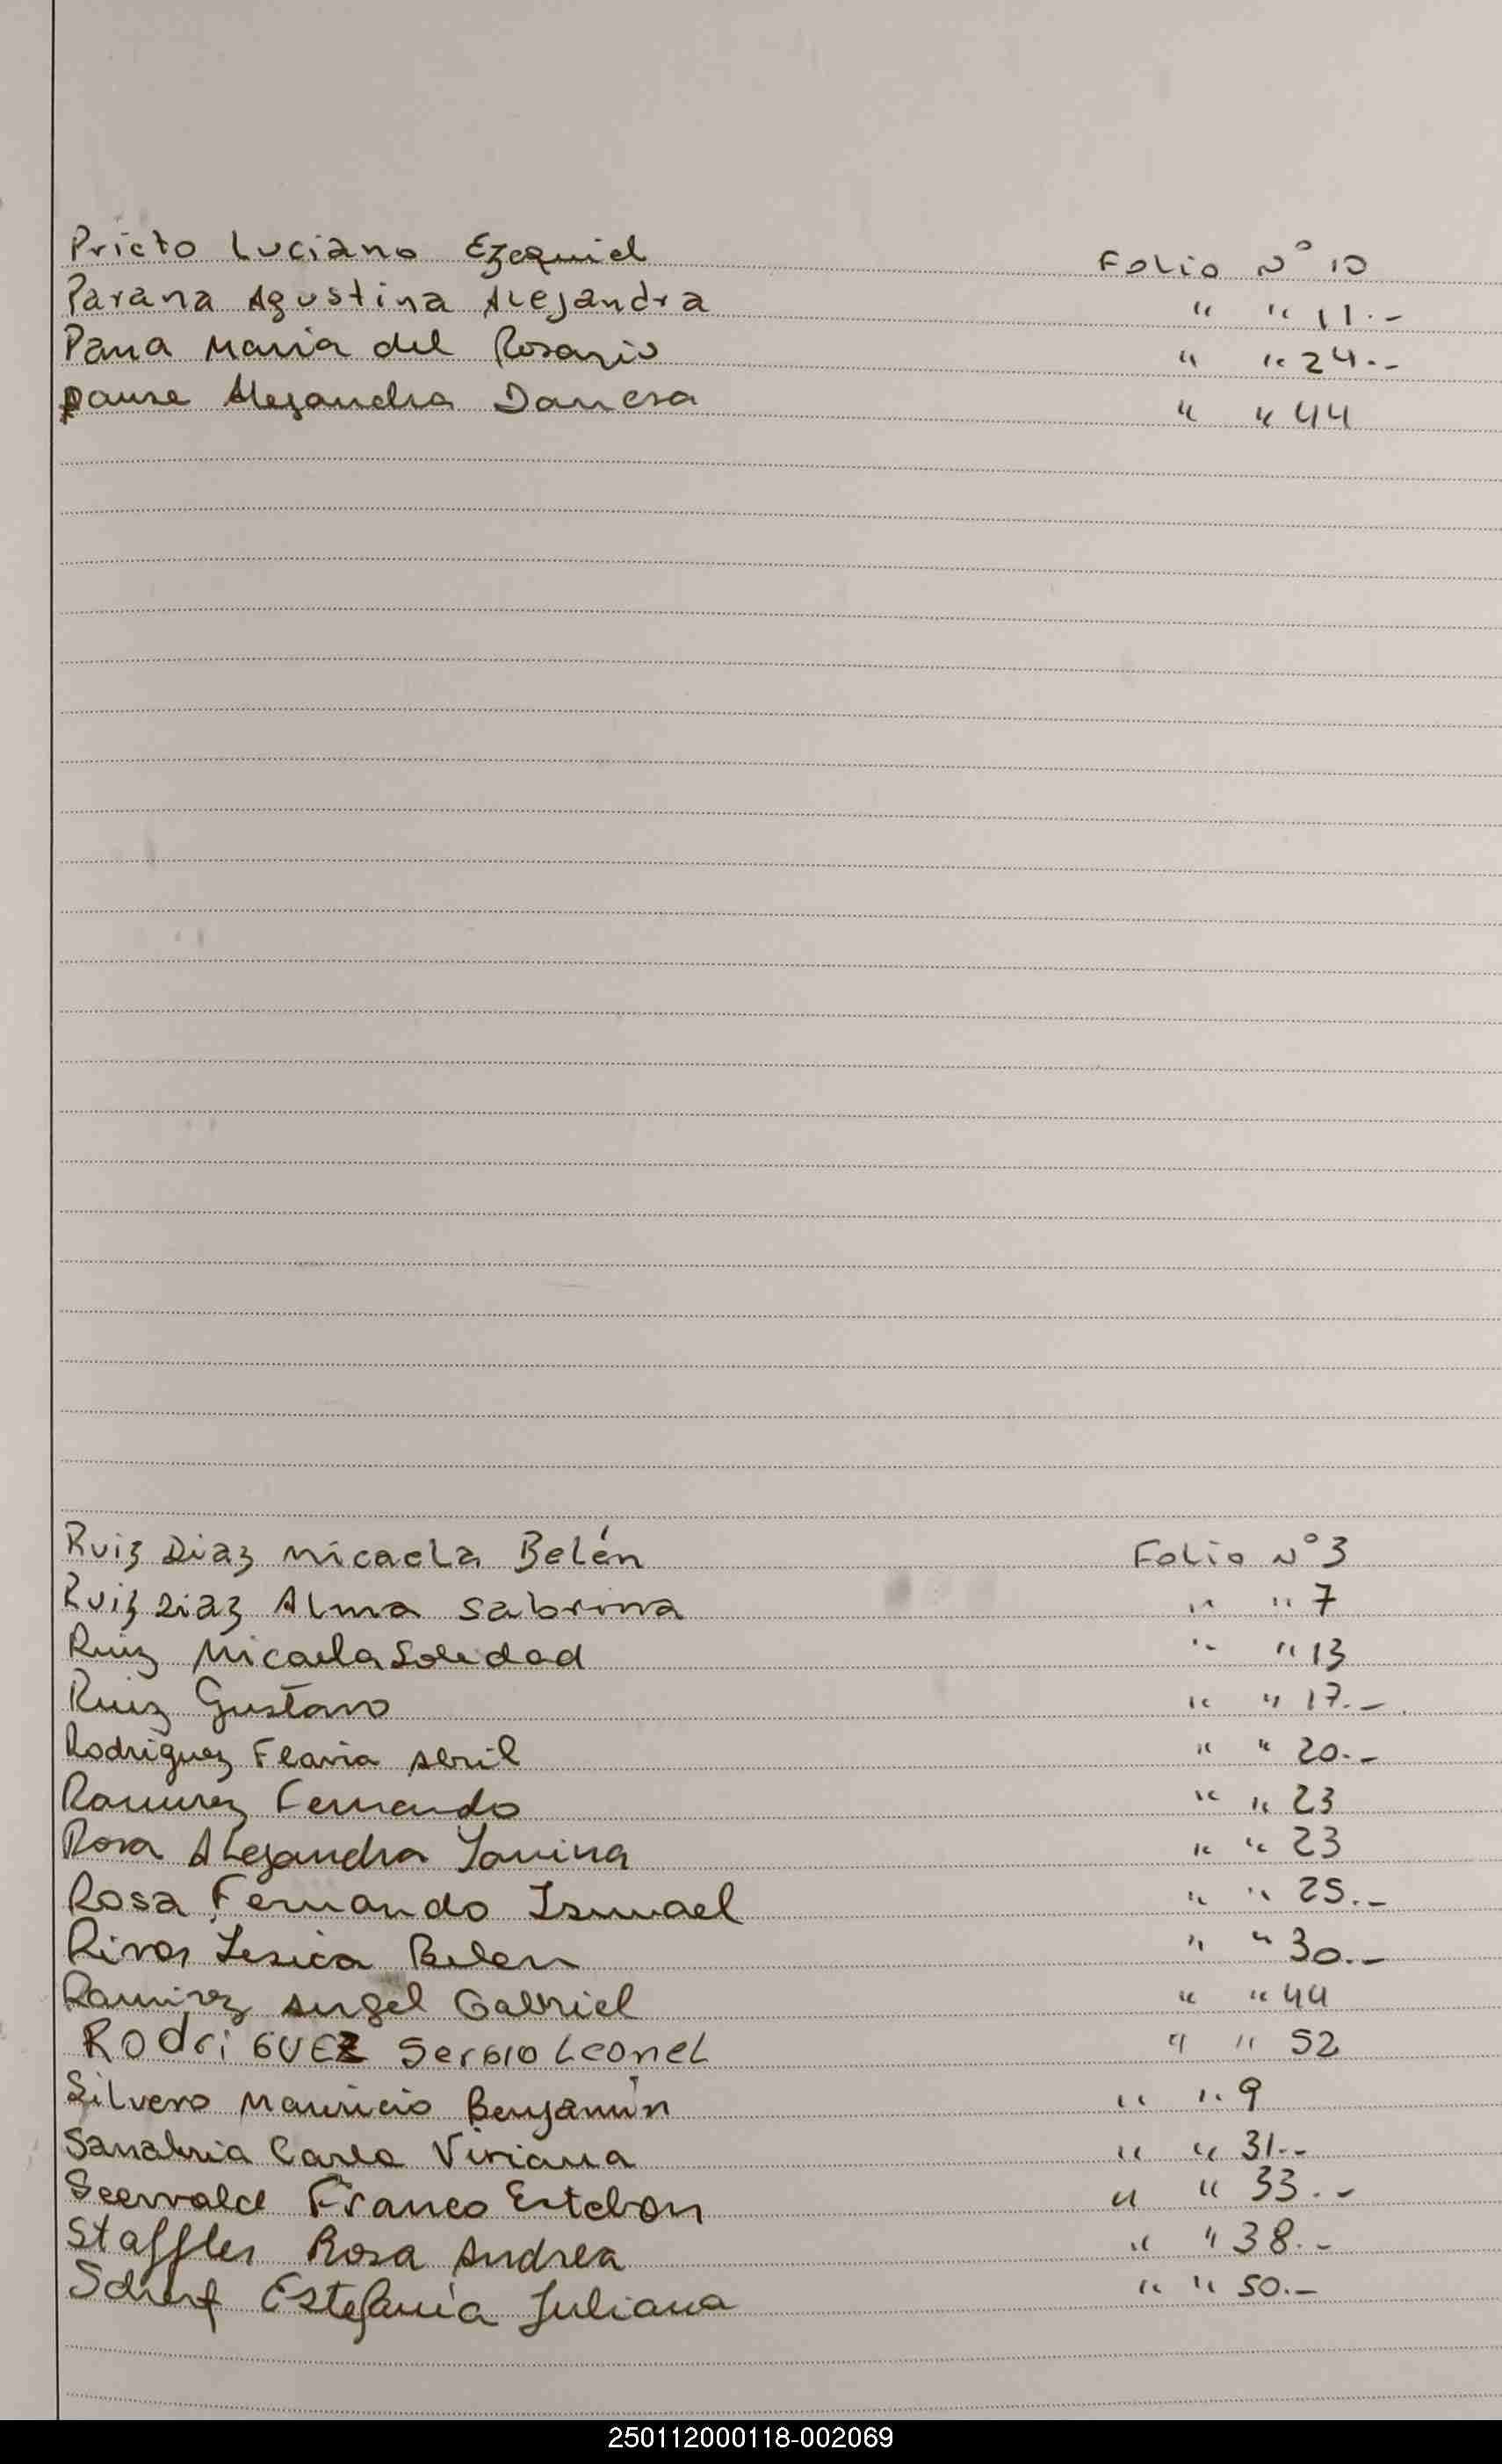 Prieto Luciano Ezequiel Folio N° 10
Parana Agustina Alejandra " " 11.-
Maria del Rosario " " 24.-
Alejandra Danesa " " 44
Ruiz Diaz Micaela Belén Folio N° 3
Ruiz Diaz Alma Sabrina " " 7
Ruiz Micaela Soledad " " 13
Ruiz Gustavo " " 17.-
Rodriguez Flavia Abril " " 20.-
Ramirez Fernando " " 23
Rosa Alejandra Yanina " " 23
Rosa Fernando Ismael " " 25.-
Rivas Yesica Belen " " 30.-
Ramirez Angel Gabriel " " 44
RodriGUEZ Sergio LeoneL " " 52
Silvero Mauricio Benjamín " " 9
Sanabria Carla Viviana " " 31.-
Seewald Franco Esteban " " 33.-
Staffler Rosa Andrea " " 38.-
Scherf Estefanía Juliana " " 50.-
250112000118-002069